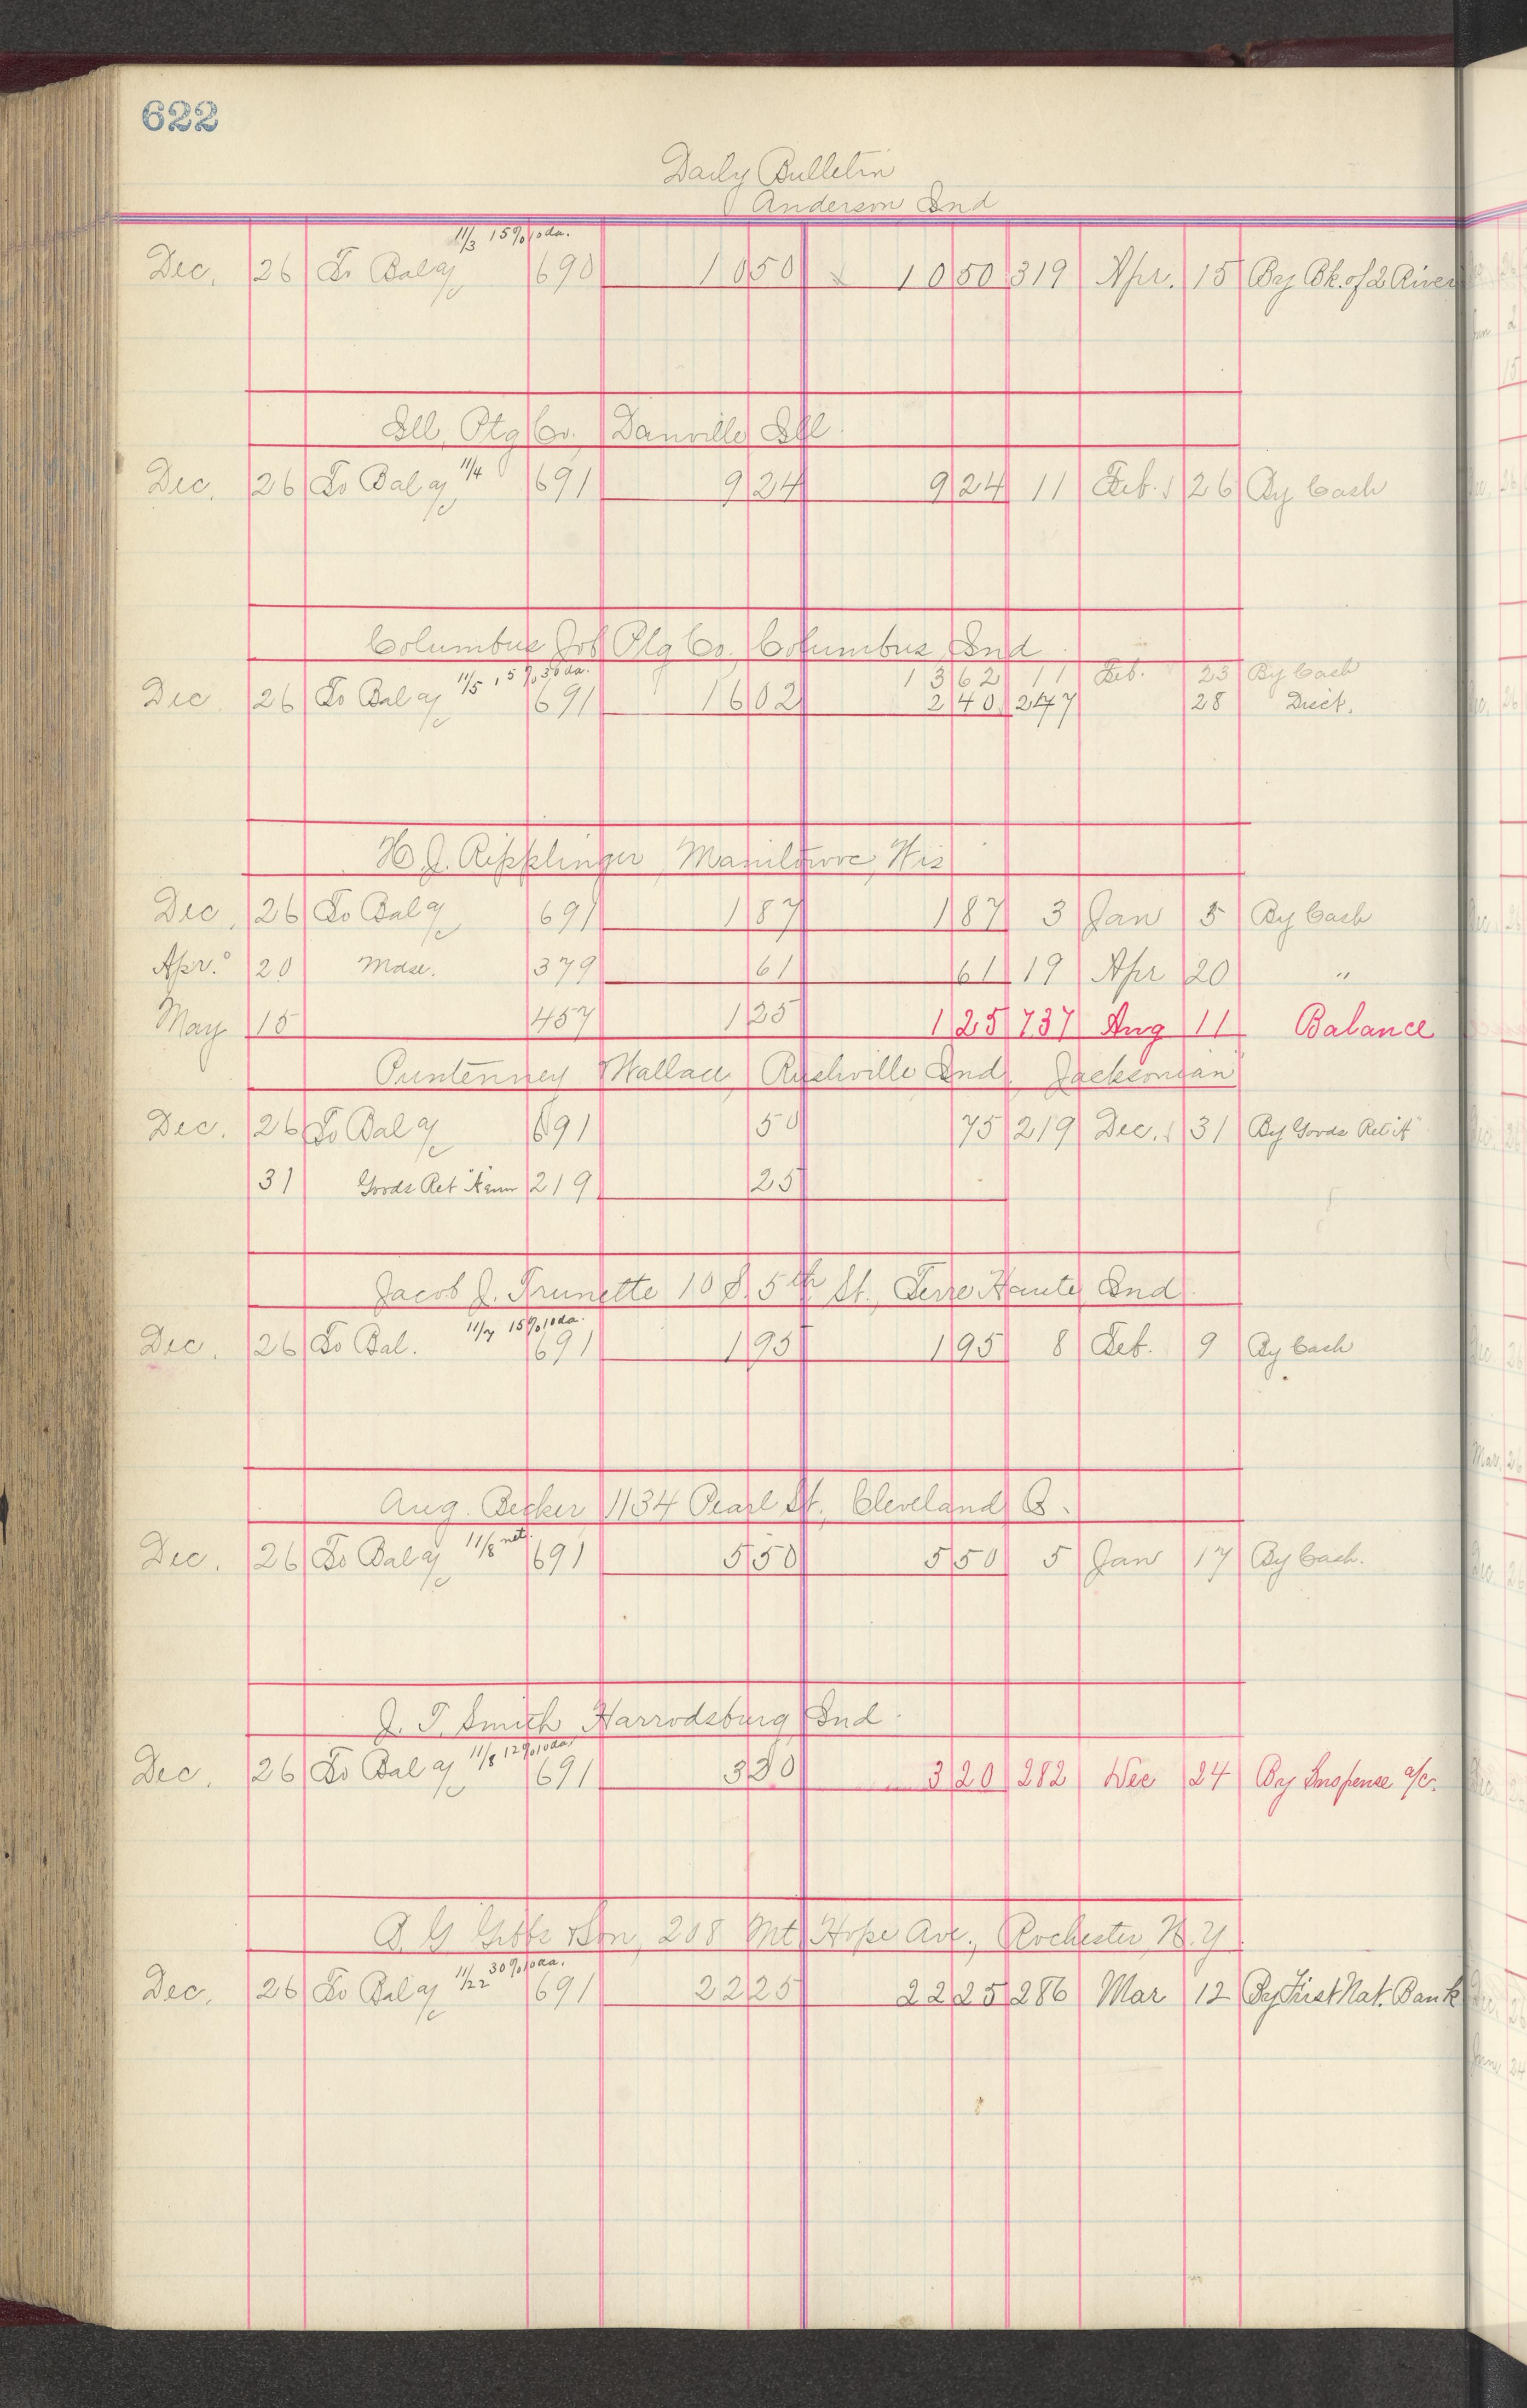 622
Daily Bulletin
Anderson Ind
11/3 15% 10 da.
Dec. 26 To Bal a/c 690 10 50 10 50 319 Apr. 15 By Bk. of 2 River
Ill. Ptg Co. Danville Ill.
Dec. 26 To Bal a/c 11/4 691 9 24 9 24 11 Feb. 26 By Cash
Columbus Job Ptg Co. Columbus, Ind.
13 62 11 Feb. 23 By Cash
Dec 26 To Bal a/c 11/5 15% 30 da. 691 16 02 2 40 247 28 Disct.
H. J. Ripplinger, Manitowoc, Wis
Dec. 26 To Bal a/c 691 1 87 1 87 3 Jan 5 By Cash
Apr. 20 Mdse. 379 61 61 19 Apr 20 "
May 15 457 1 25 1 25 737 Aug 11 Balance
Puntenney Wallace, Rushville Ind. Jacksonian
Dec. 26 To Bal a/c 691 50 75 219 Dec. 31 By Goods Ret
31 Goods Ret 219 25
Jacob J. Trunette 10 S. 5th St., Terre Haute, Ind.
Dec. 26 To Bal. 11/7 15% 10 da. 691 1 95 1 95 8 Feb. 9 By Cash
Aug. Becker 1134 Pearl St., Cleveland O.
Dec. 26 To Bal a/c 11/8 net. 691 5 50 5 50 5 Jan 17 By Cash.
J. T. Smith, Harrodsburg Ind.
Dec. 26 To Bal a/c 11/8 12% 10 da. 691 3 20 3 20 282 Dec 24 By Suspense a/c.
Gibbs & Son, 208 Mt. Hope Ave., Rochester, N.Y.
Dec. 26 To Bal a/c 11/22 30% 10 da. 691 22 25 22 25 286 Mar 12 By First Nat. Bank